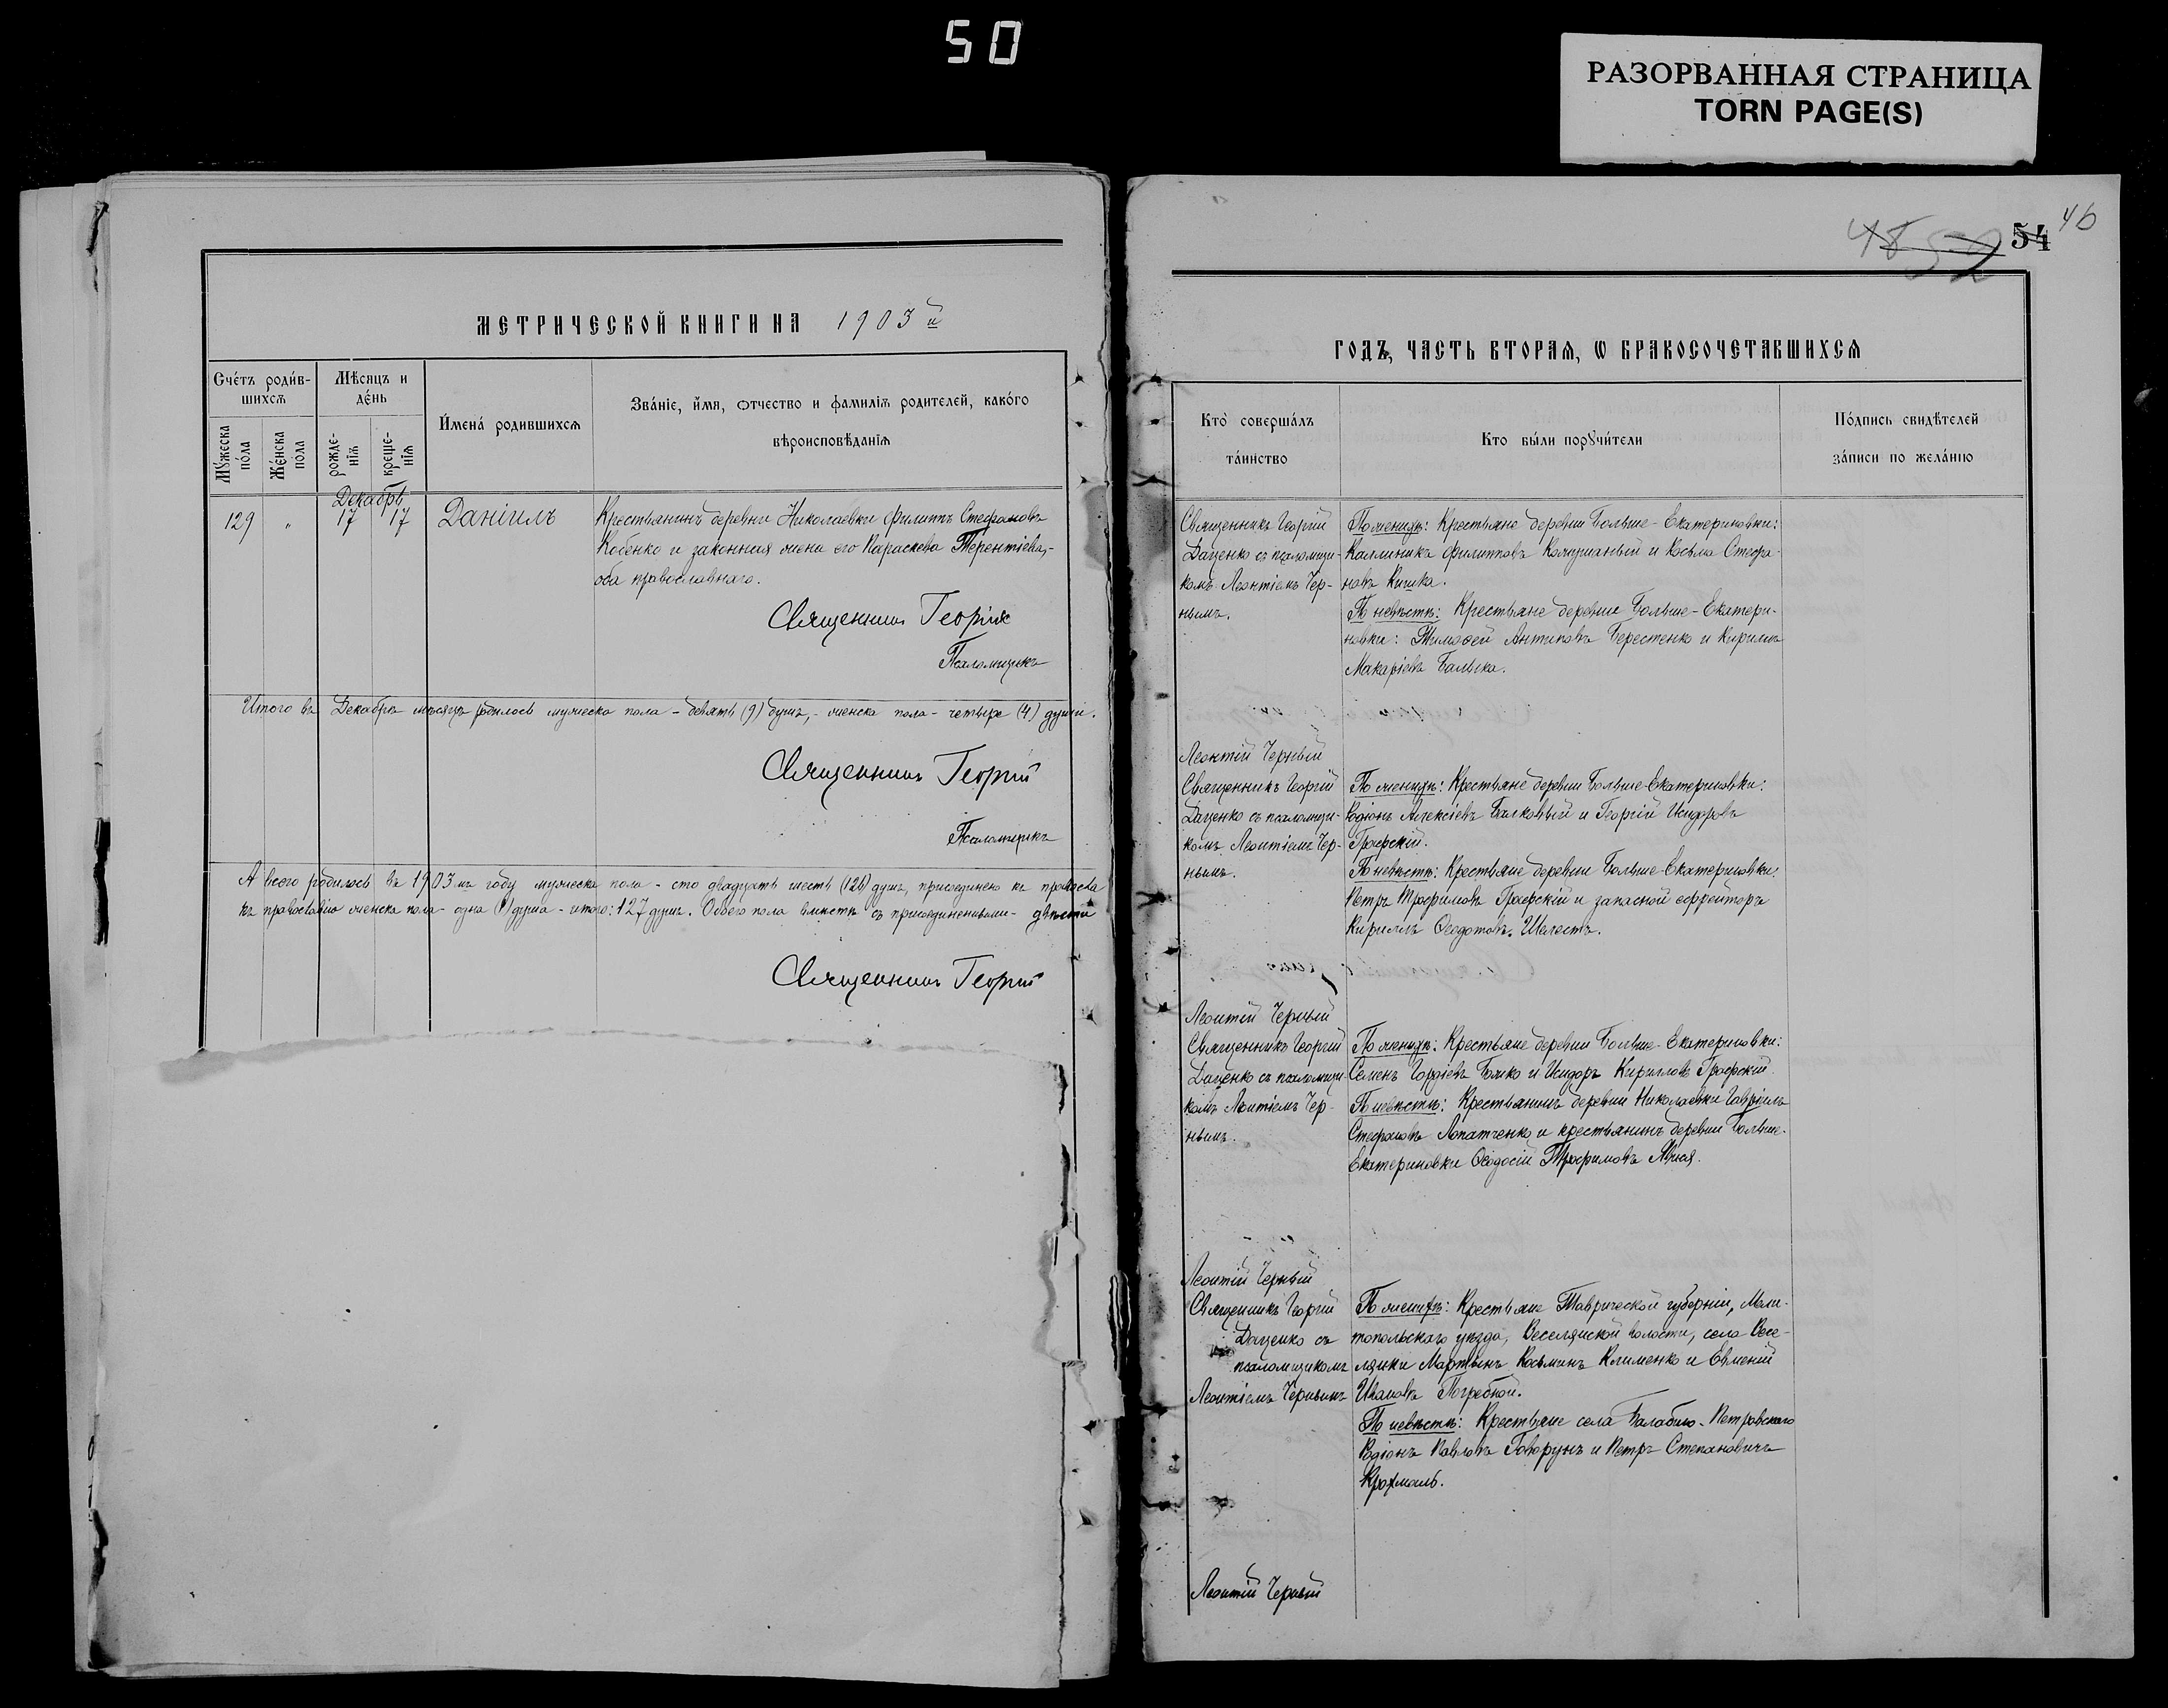 50
РАЗОРВАННАЯ СТРАНИЦА
TORN PAGE(S)
МЕТРИЧЕСКОЙ КНИГИ НА 1903й
Счётъ роди́в-
шихсѧ
Мѣсяцъ и
де́нь
И҆мена̀ родившихсѧ
Зва́ніе, и҆́мѧ, ѻтчество и фамиліѧ родителей, како́го
вѣроисповѣданіѧ
Мꙋжеска
по́ла
Же́нска
пола
рожде-
ніѧ
креще-
ніѧ
Декабрь
129 " 17 17 Даніилъ
Крестьянинъ деревни Николаевки Филиппъ Стефановъ
Кобенко и законная жена его Параскева Терентіева,-
оба православнаго.
Священникъ Георгій
Псаломщикъ
Итого въ Декабрѣ мѣсяцѣ родилось мужеска пола - девять (9) душъ, - женска пола - четыре (4) души.
Священникъ Георгій
Псаломщикъ
А всего родилось въ 1903 мъ году мужеска пола - сто двадцать шесть (126) душъ, присоединено къ
къ православію женска пола - одна (1) душа - итого: 127 душъ. Обоего пола вмѣстѣ съ присоединенными - двѣсти
Священникъ Георгій
48 52 54 46
ГОДЪ, ЧАСТЬ ВТОРАѦ, Ѡ БРАКОСОЧЕТАВШИХСѦ
Кто̀ соверша́лъ
та́инство
Кто бы́ли порꙋчи́тели
По́дпись свидѣтелей
за́писи по жела́нію
Священникъ Георгій
Даценко съ псаломщи-
комъ Леонтіемъ Чер-
нымъ.
По женихѣ: Крестьяне деревни Больше-Екатериновки:
Каллиникъ Филипповъ и Косьма Стефа-
новъ Кишка.
По невѣстѣ: Крестьяне деревни Больше-Екатери-
новки: Тимофей Антиповъ Берестенко и Кириллъ
Макаріевъ Балыка.
Леонтій Черный
Священникъ Георгій
Даценко съ псаломщи-
комъ Леонтіемъ Чер-
нымъ.
По женихѣ: Крестьяне деревни Больше-Екатериновки:
Родіонъ Алексіевъ Балковый и Георгій Исидоровъ
Графскій.
По невѣстѣ: Крестьяне деревни Больше-Екатериновки:
Петръ Трофимовъ Графскій и запасной ефрейторъ
Кириллъ Ѳеодотовъ Шелестъ.
Леонтій Черный
Священникъ Георгій
Даценко съ псаломщи-
комъ Леонтіемъ Чер-
нымъ.
По женихѣ: Крестьяне деревни Больше-Екатериновки:
Семенъ Гордіевъ Бойко и Исидоръ Кирилловъ Графскій.
По невѣстѣ: Крестьянинъ деревни Николаевки Гавріилъ
Стефановъ Лопатченко и крестьянинъ деревни Больше-
Екатериновки Ѳеодосій Трофимовъ
Леонтій Черный
Священникъ Георгій
Даценко съ
псаломщикомъ
Леонтіемъ Чернымъ
По женихѣ: Крестьяне Таврической губерніи, Мели-
топольскаго уѣзда, Веселянской волости, села Весе-
лянки Мартынъ Косьминъ Клименко и Евменій
Ивановъ Погребной.
По невѣстѣ: Крестьяне села Балабино-Петровскаго
Родіонъ Павловъ Говорунъ и Петръ Степановичъ
Крохмаль.
Леонтій Черный